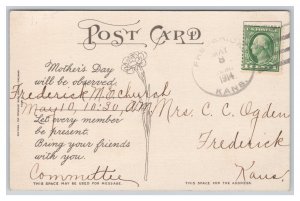 POST CARD
Mother's Day
will be observed
Frederick M.E. Church
May 10, 10:30 A.M.
Let every member
be present.
Bring your friends
with you.
Committee
THIS SPACE MAY BE USED FOR MESSAGE.
MAY
8
1914
KANS.
Mrs. C. C. Ogden
Frederick
Kans.
THIS SPACE FOR THE ADDRESS.